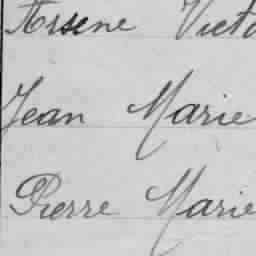 Arsene Victo
Jean Marie
Pierre Marie